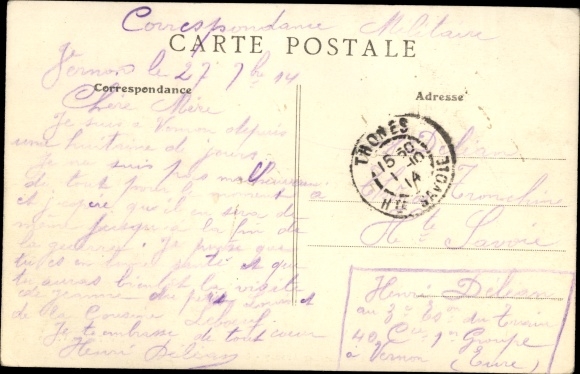 Correspondance Militaire
CARTE POSTALE
Vernon le 27 7bre 14
Correspondance
Adresse
Chère Mère
Je suis à Vernon depuis
une huitaine de jours.
Je ne suis pas malheureux
du tout pour le moment
et j'espère qu'il en sera de
même jusqu'à la fin de
la guerre. Je pense que
tu es en bonne santé et que
tu auras bientôt la visite
de
de la Cousine
Je t'embrasse de tout coeur
Henri Deléan
Deléan
Tronchine
Hte Savoie
THONES
15 50
1 - 10
14
HTE SAVOIE
Henri Deléan
au 3e Eson du train
40 Cie 1er Groupe
à Vernon (Eure)